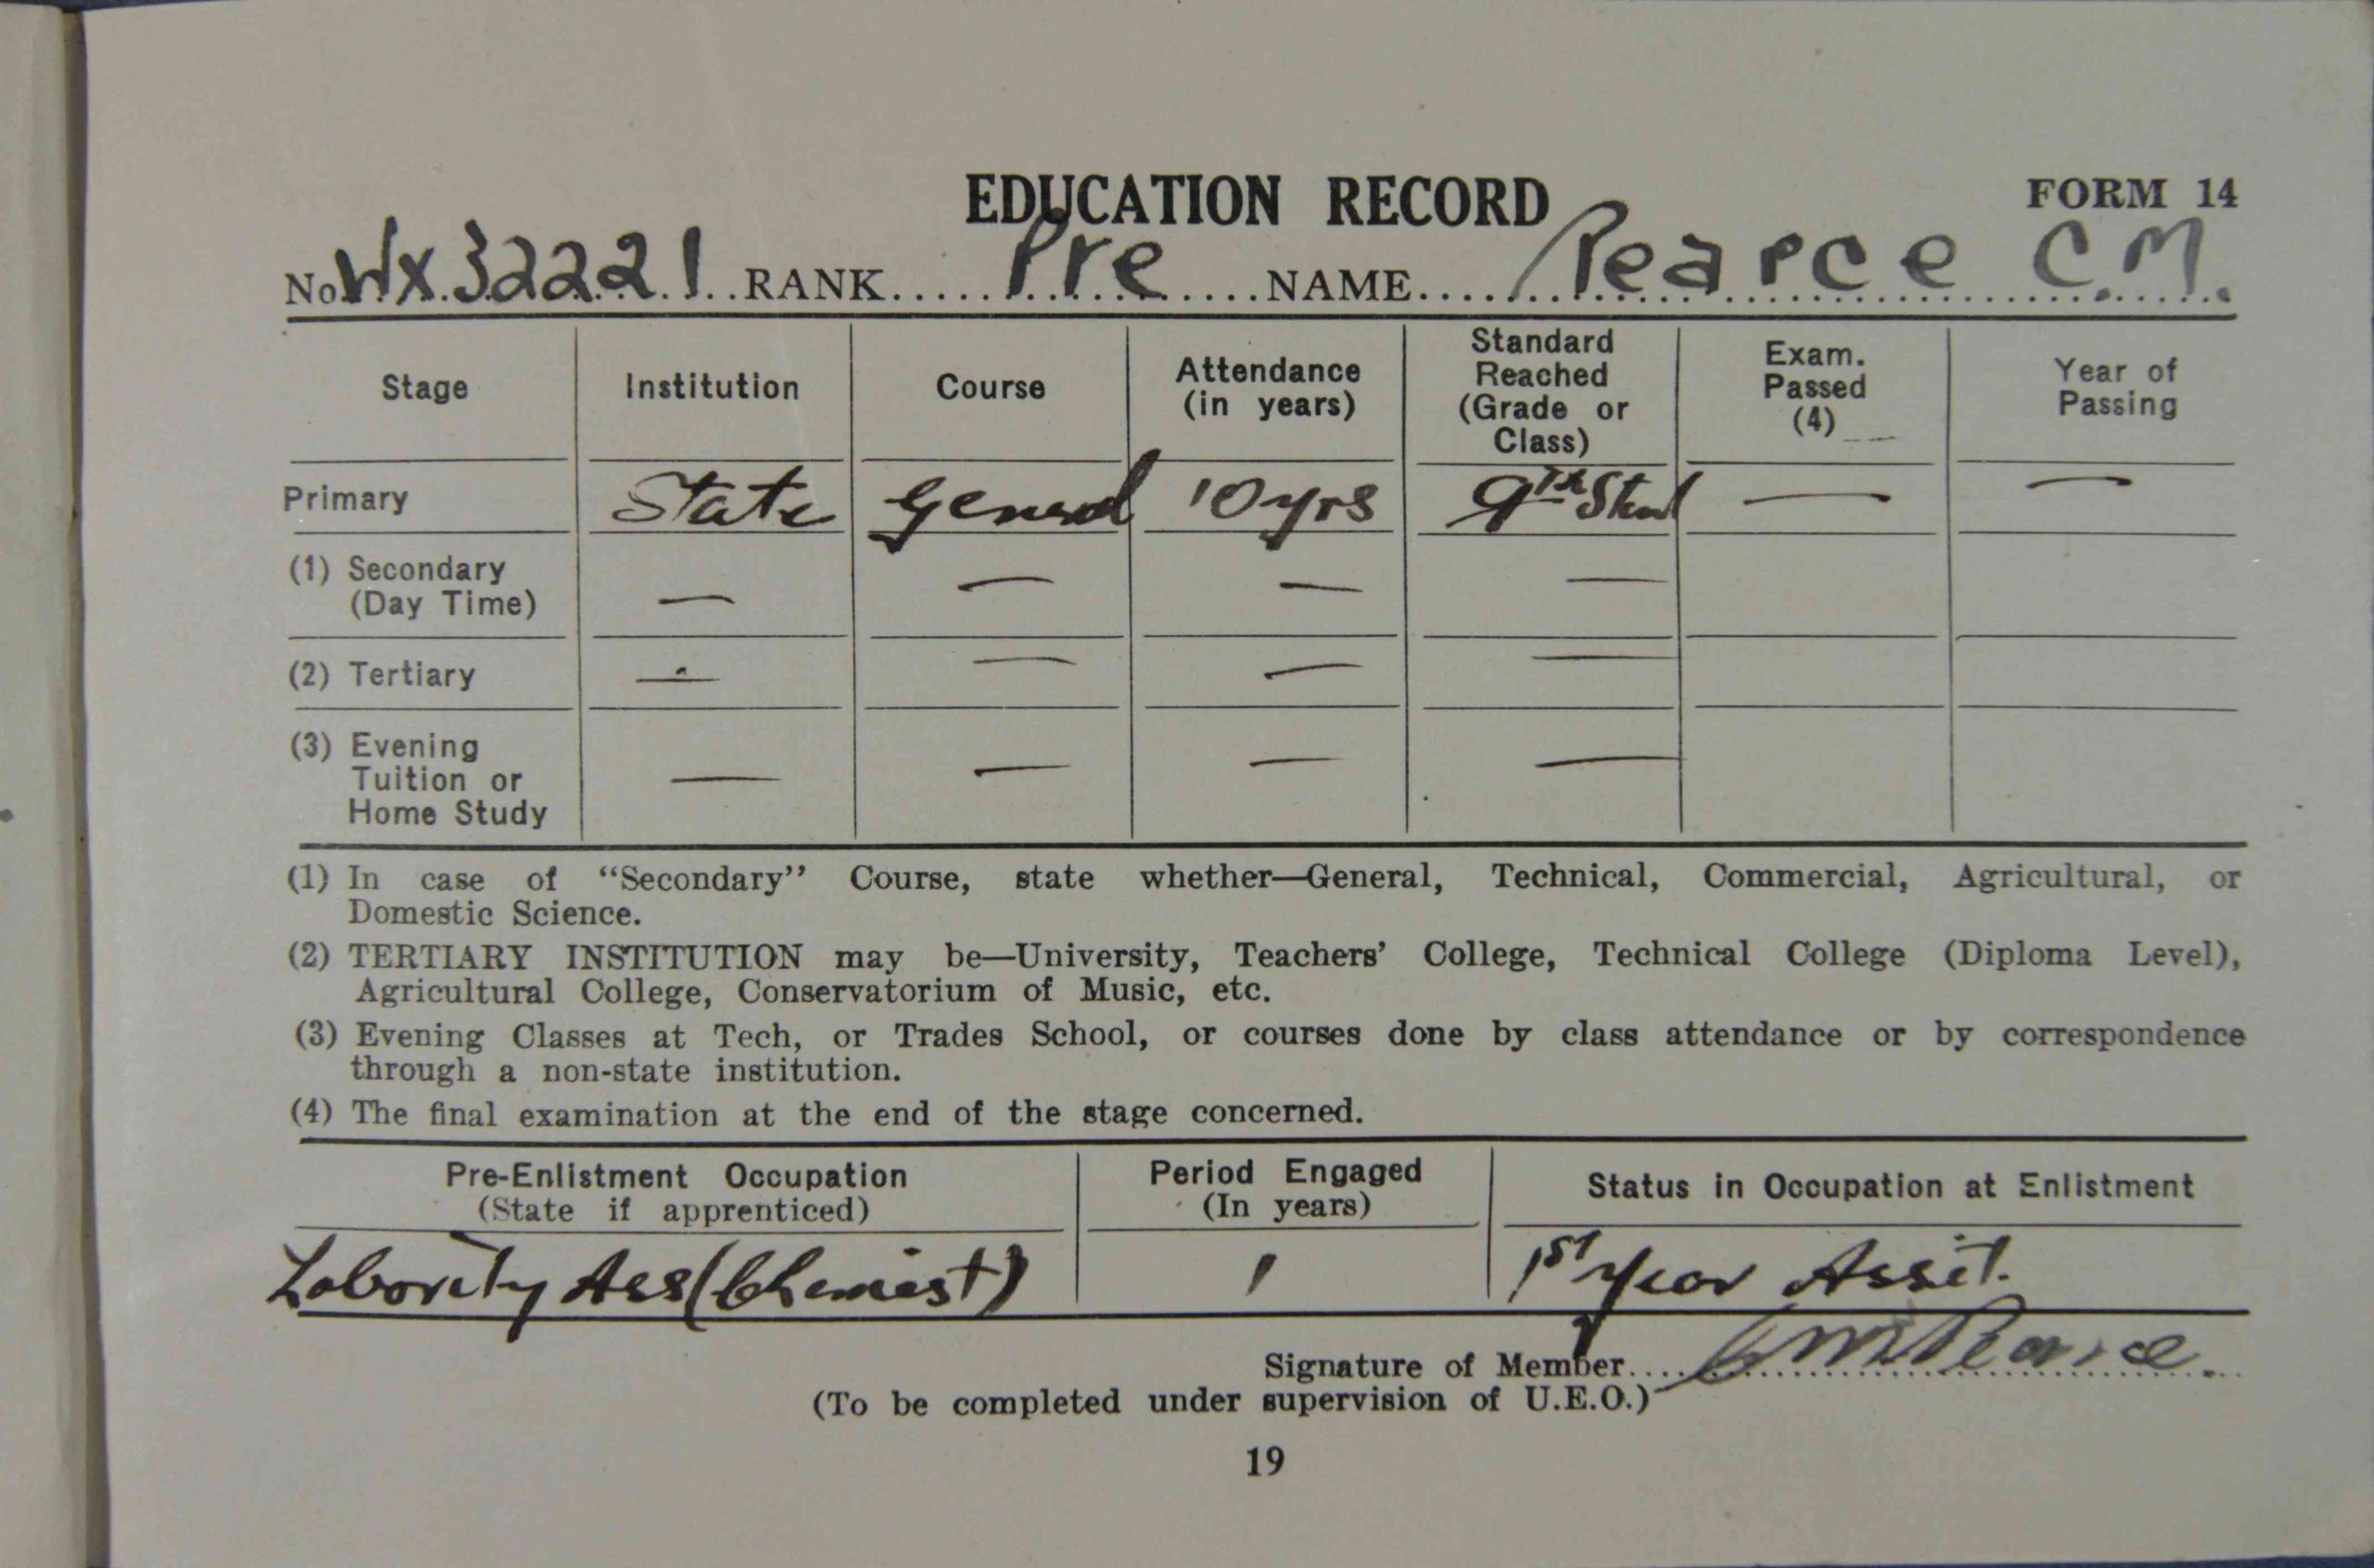 EDUCATION RECORD
FORM 14
No. WX32221 RANK Pre NAME Pearce C.M.
Stage Institution Course Attendance (in years) Standard Reached (Grade or Class) Exam. Passed (4) Year of Passing
Primary State General 10 yrs 9th Stnd — —
(1) Secondary (Day Time) — — — —
(2) Tertiary — — — —
(3) Evening Tuition or Home Study — — — —
(1) In case of “Secondary” Course, state whether—General, Technical, Commercial, Agricultural, or
Domestic Science.
(2) TERTIARY INSTITUTION may be—University, Teachers’ College, Technical College (Diploma Level),
Agricultural College, Conservatorium of Music, etc.
(3) Evening Classes at Tech, or Trades School, or courses done by class attendance or by correspondence
through a non-state institution.
(4) The final examination at the end of the stage concerned.
Pre-Enlistment Occupation (State if apprenticed) Period Engaged (In years) Status in Occupation at Enlistment
Labority Ass (Chemist) 1 1st year Assit.
Signature of Member CM Pearce
(To be completed under supervision of U.E.O.)
19